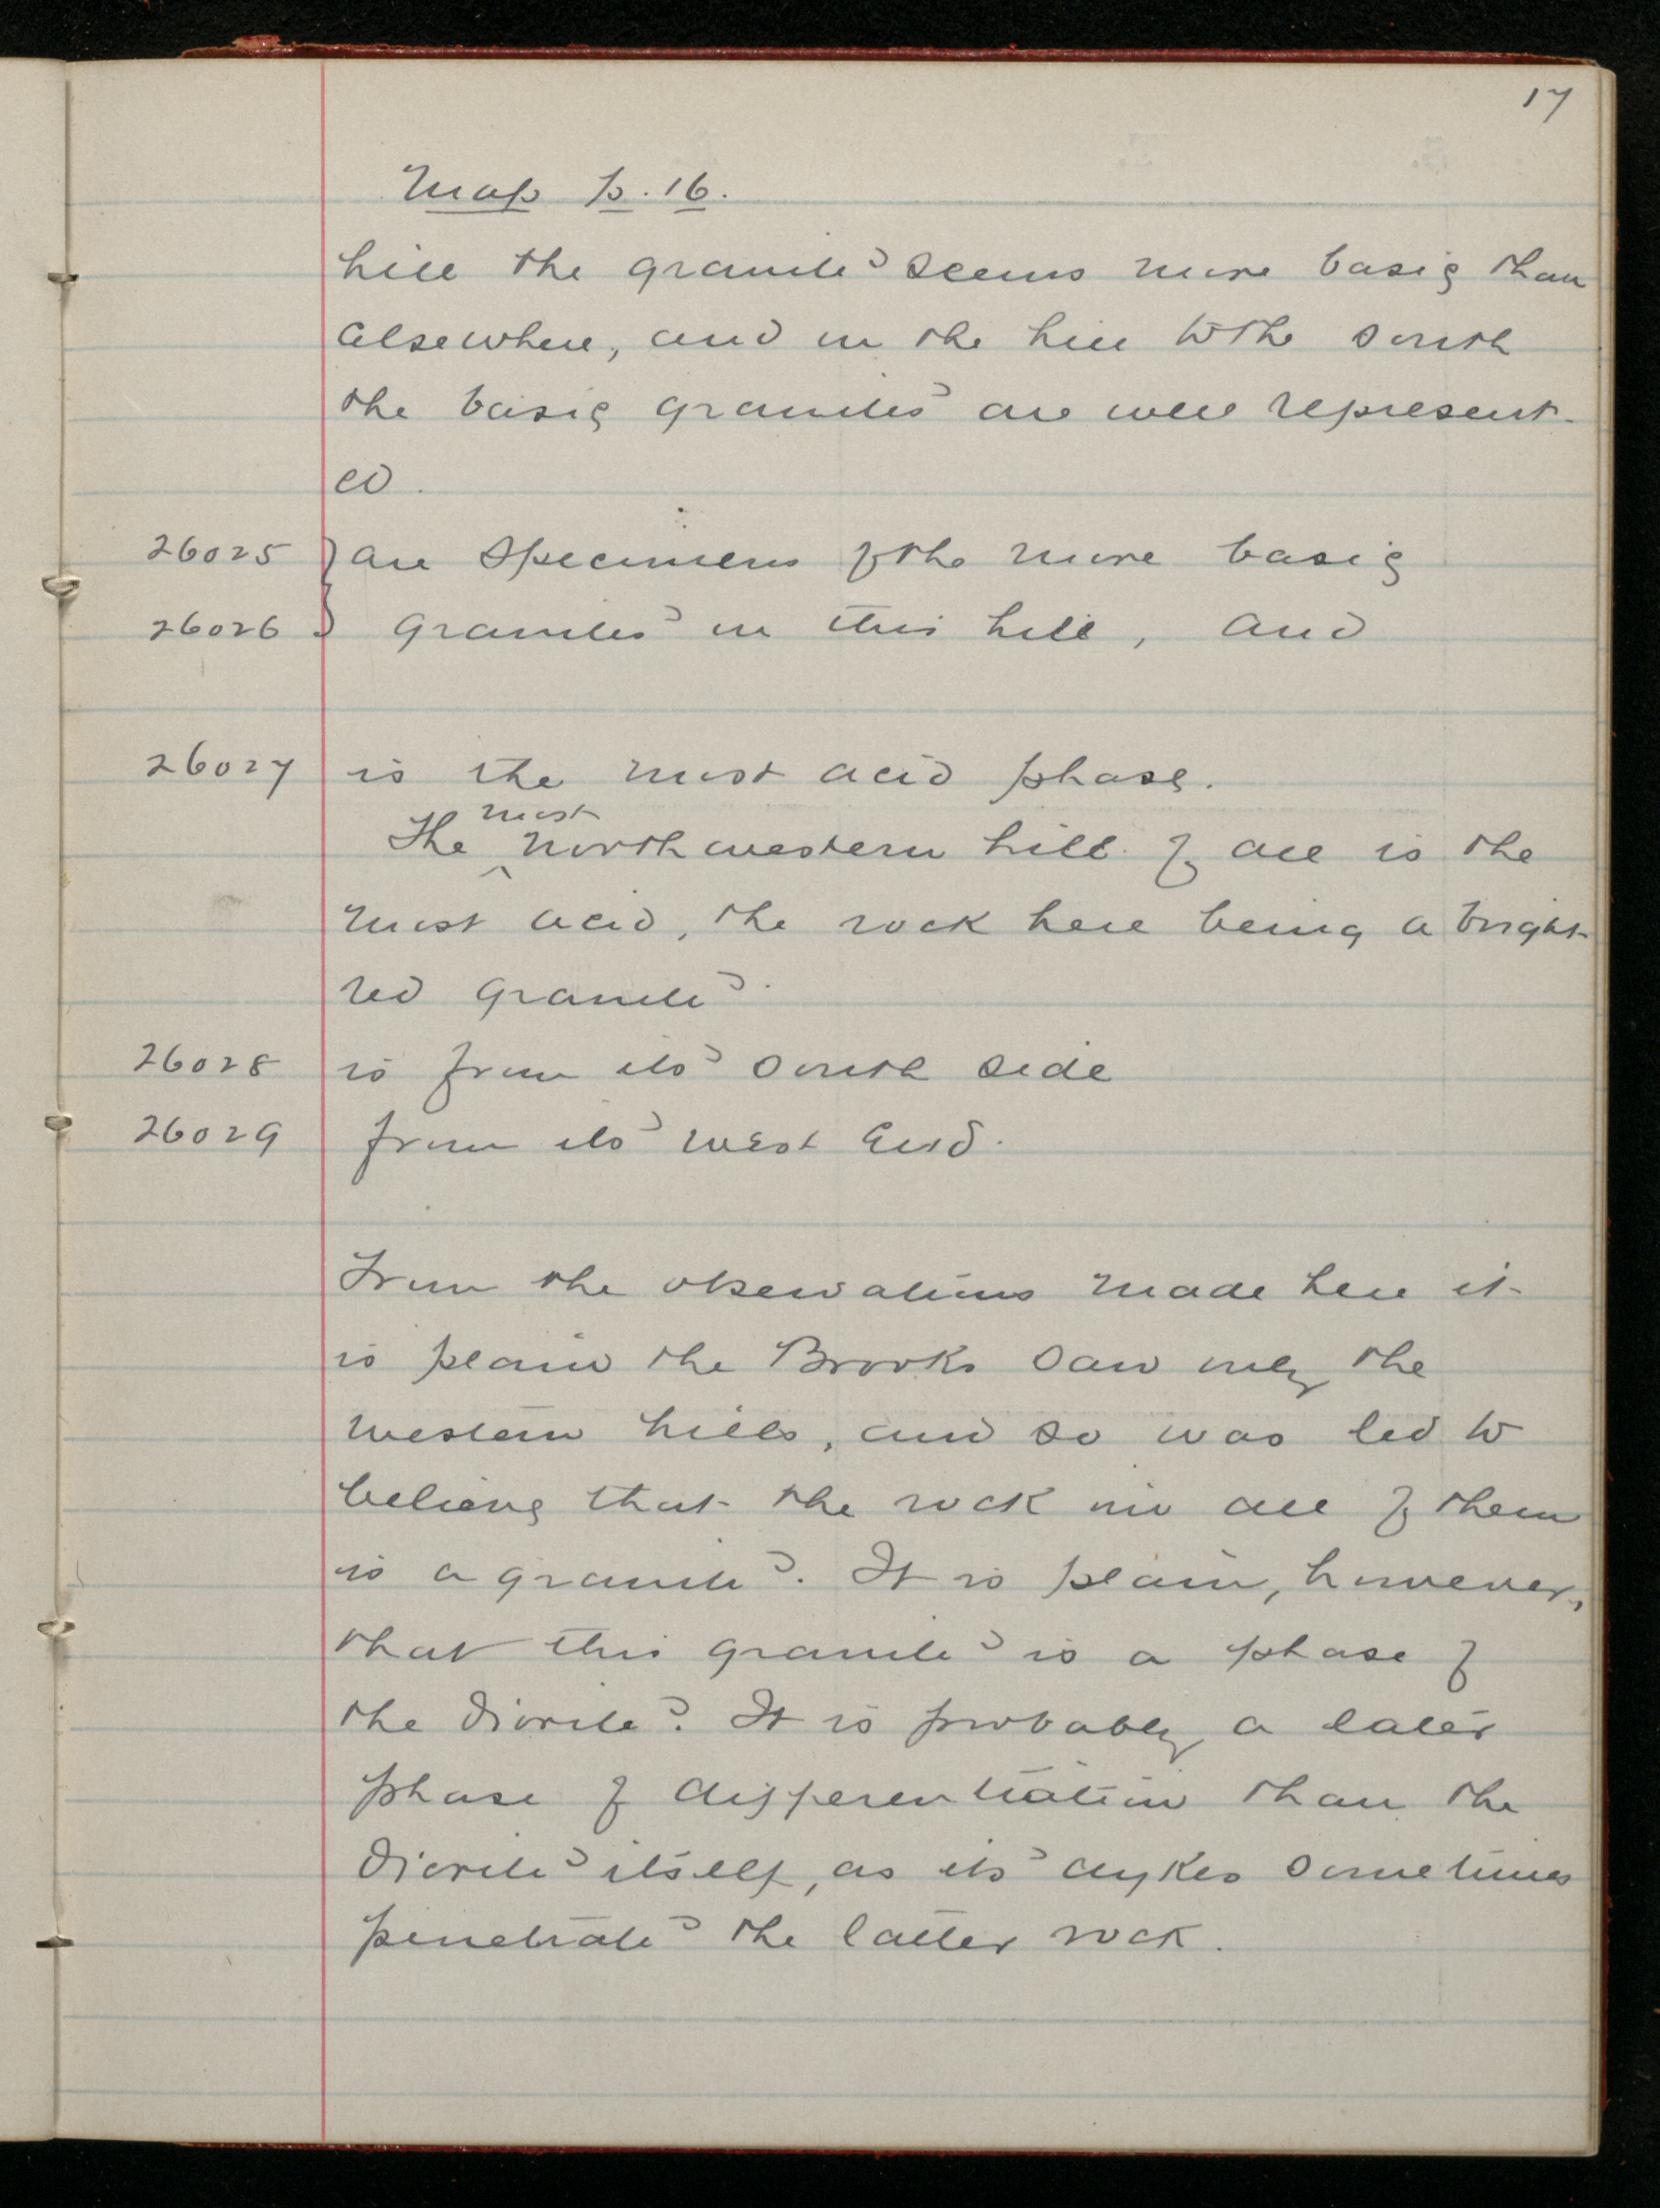 17
Map p. 16.
hill the granite seems more basic than
elsewhere, and in the hill to the south
the basic granites are well represent-
ed.
26025 } are specimens of the more basic
26026 } granites in this hill, and
26027 is the most acid phase.
most
The northwestern hill of all is the
most acid, the rock here being a bright
red granite.
26028 is from its south side
26029 from its west end.
From the observations made here it
is plain the Brooks saw only the
western hills, and so was led to
believe that the rock in all of them
is a granite. It is plain, however,
that this granite is a phase of
the diorite. It is probably a later
phase of differentiation than the
diorite itself, as its dykes sometimes
penetrate the latter rock.